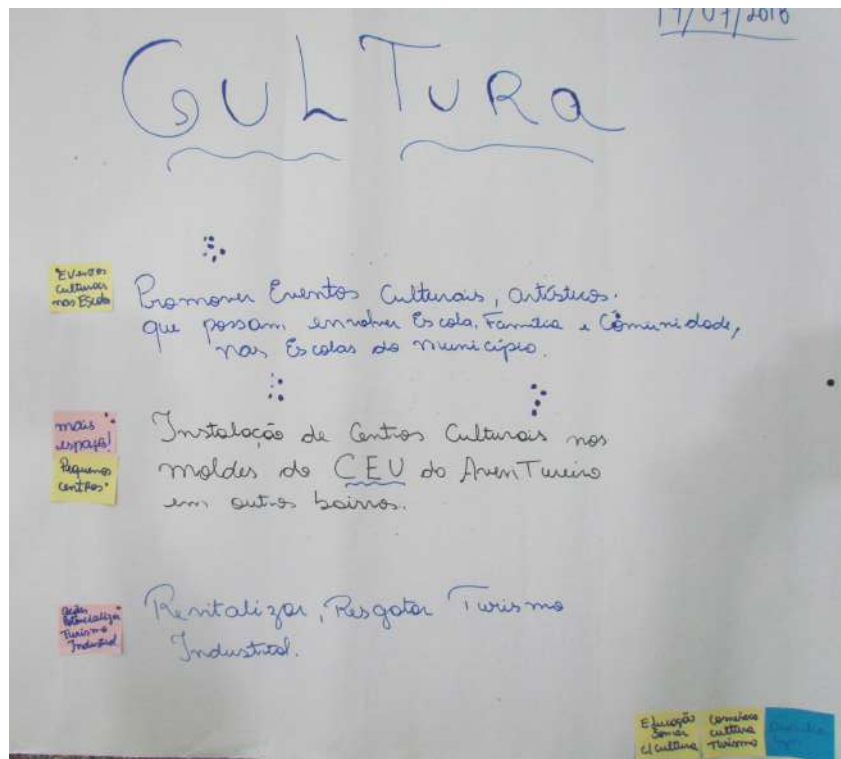 17/07/2018
CULTURA
Eventos
Culturais
nas Escola
Promover Eventos Culturais, artísticos.
que possam envolver Escola, Família e Comunidade,
nas Escolas do município.
mais
espaço!
Pequenos
centros
Instalação de Centros Culturais nos
moldes do CEU do AvenTureiro
em outros bairros.
Turismo
Industrial
Revitalizar, Resgatar Turismo
Industrial.
Educação
Somar
c/ cultura
Comércio
cultura
Turismo